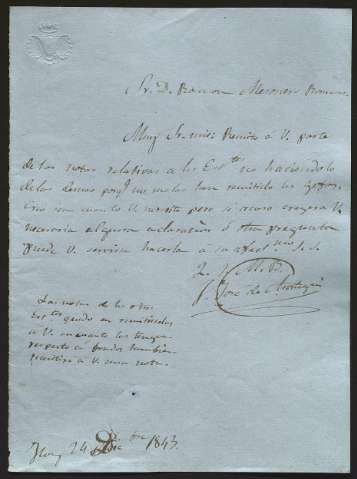 Sr. D. Ramon Mesonero Romanos
Muy Sr. mio: Remito á V. parte
de las notas relativas á los Ess.tos no haciendolo
de las demas porq.e no me las han remitido los gefes.
Creo son cuanto V. necesita pero si acaso creyera V.
necesaria alguna aclaracion ó otra pregunta
puede V. servirse hacerla á su afect.mo S. S.
Q. B. S. M.
José de
Las notas de los otros
Ess.tos quedo en remitirselas
á V. en cuanto las tenga
respecto á fondos tambien
remitiré á V. una nota.
Hoy 24 Dic.bre 1843